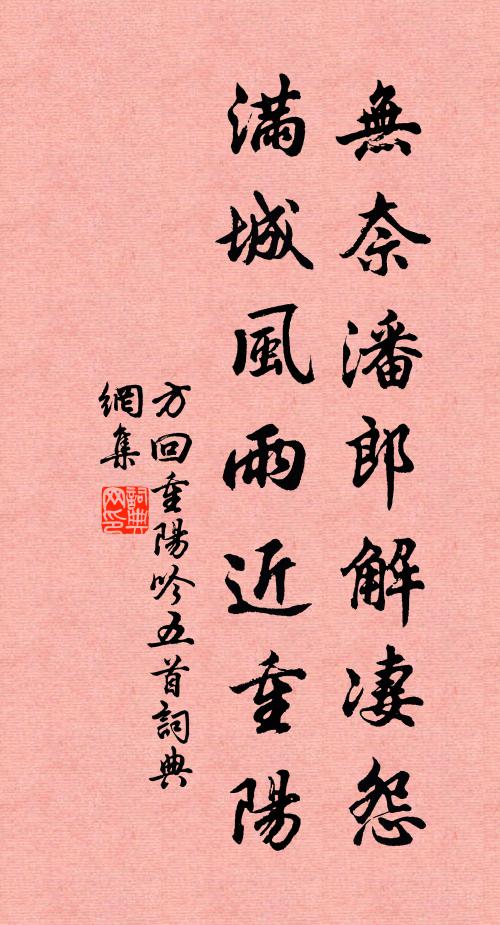 無奈潘郎解凄怨
滿城風雨近重陽
方回重陽吟五首詞典
網集
詞典
网印